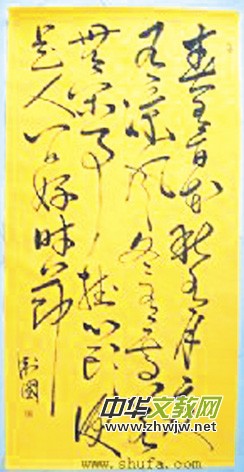 春有百花秋有月夏
有凉風冬有雪若
無閑事挂心頭便
是人間好時節
國
中华文教网
www.zhwjw.net
www.shufa.com